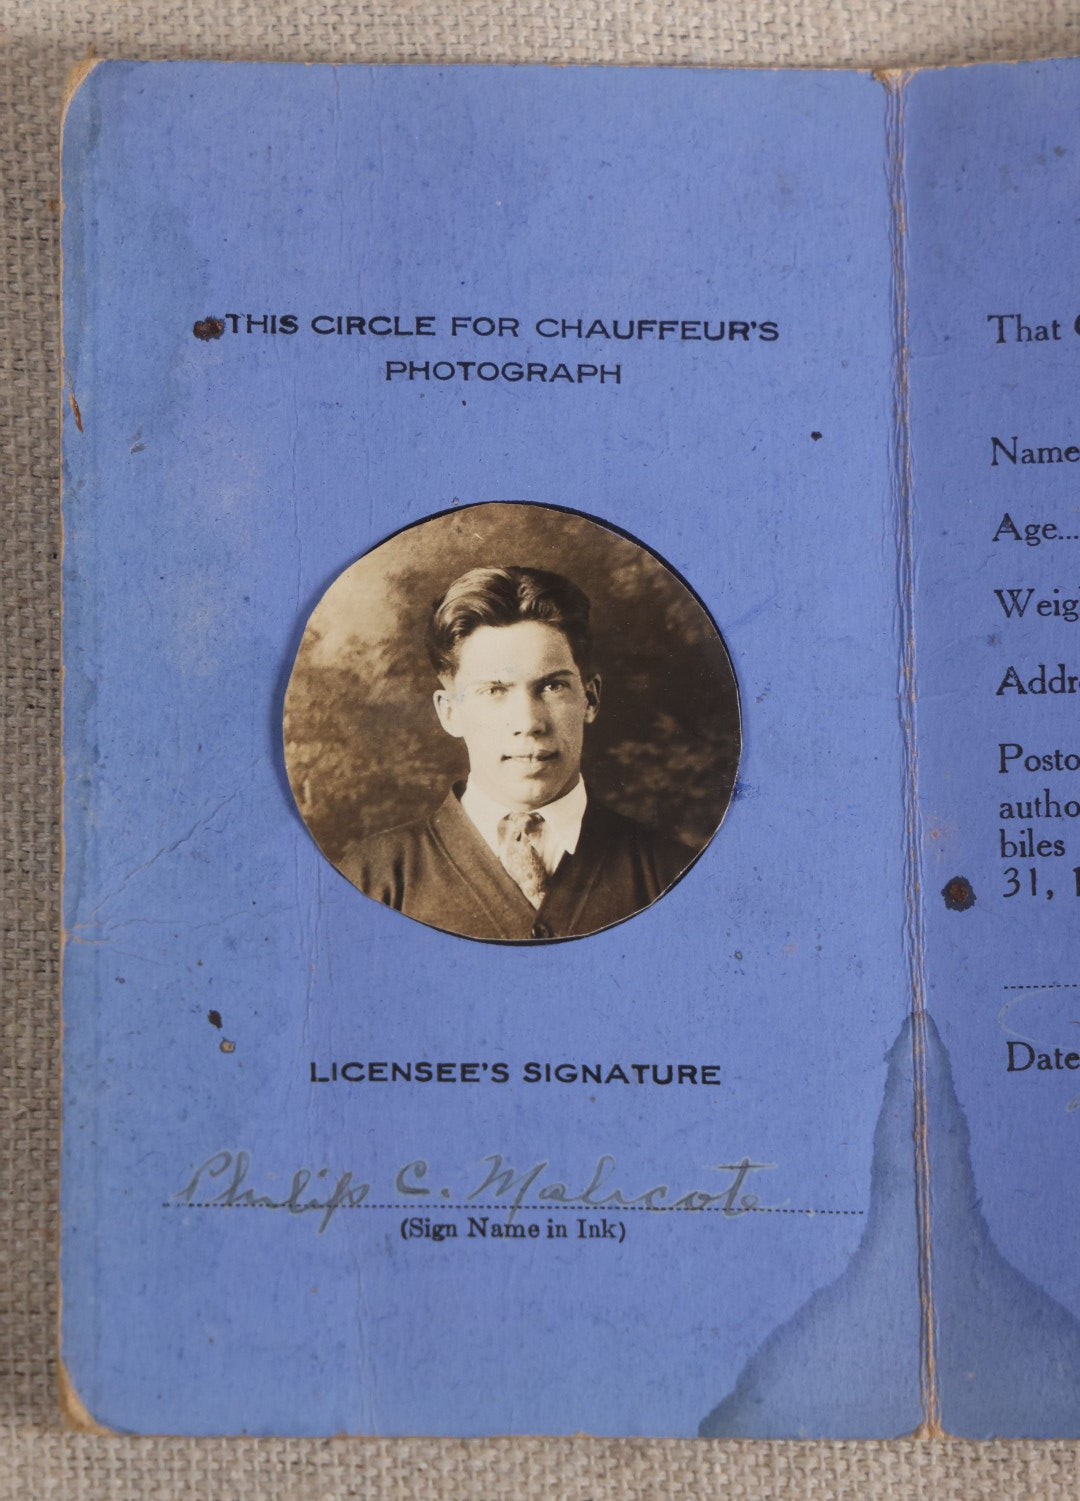 THIS CIRCLE FOR CHAUFFEUR'S
PHOTOGRAPH
LICENSEE'S SIGNATURE
Philip C. Malicote
(Sign Name in Ink)
That
Name
Age...
Weig
Addr
Posto
autho
biles
31, 1
Date